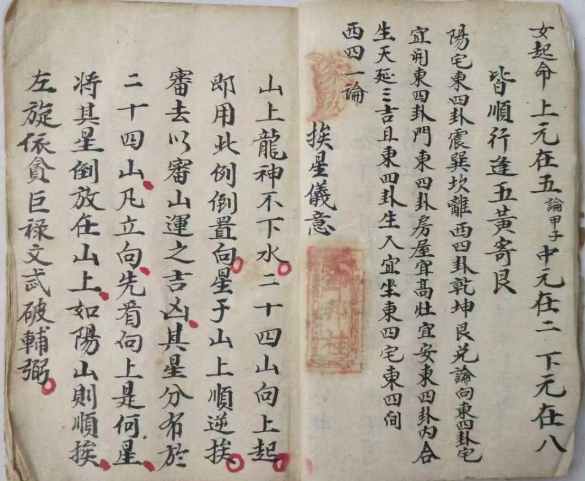 女起命上元在五論甲子中元在二下元在八
皆順行逢五黃寄艮
陽宅東四卦震巽坎離西四卦乾坤艮兑論向東四卦宅
宜開東四卦門東四卦房屋宜高灶宜安東四卦內合
生天延三吉且東四卦生人宜坐東四宅東四间
西四一論
挨星儀意
山上龍神不下水二十四山向上起
即用此例倒置向星于山上順逆挨
審去以審山運之吉凶其星分佈於
二十四山凡立向先看向上是何星
將其星倒放在山上如陽山則順挨
左旋依貪巨禄文武破輔弼